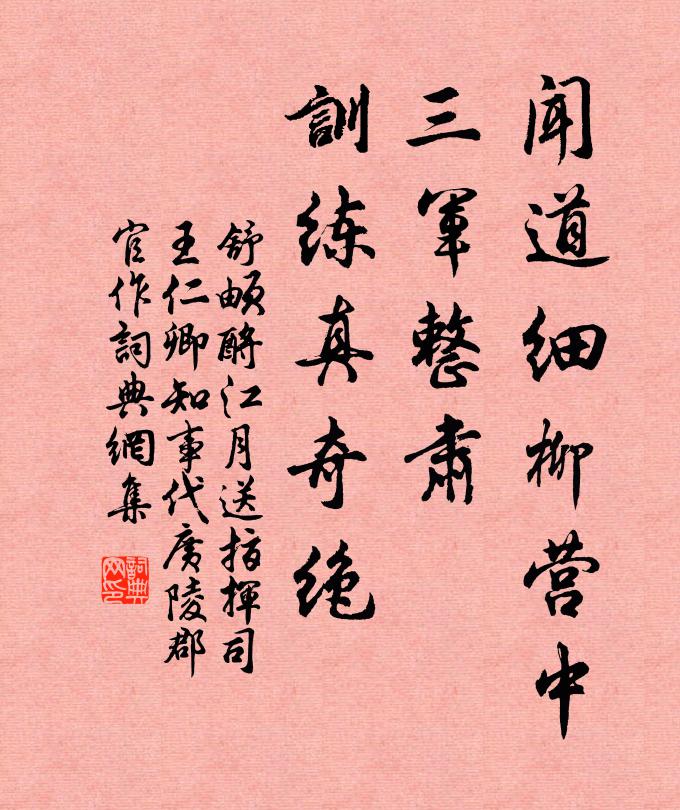 闻道细柳营中
三军整肃
訓练真奇绝
舒頔酹江月送指揮司
王仁卿知事代广陵郡
官作詞典網集
詞典网印